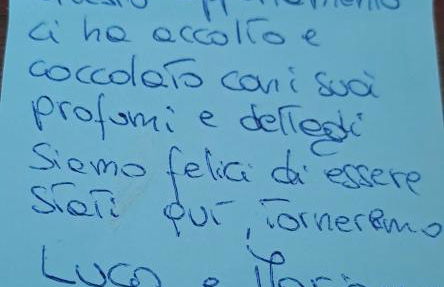 ci ha accolto e
coccolato con i suoi
profumi e dettagli
Siamo felici di essere
stati qui, torneremo
Luca e